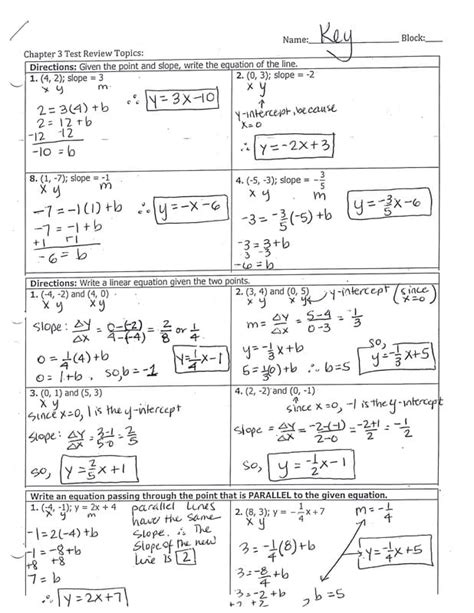 Name: Key Block:
Chapter 3 Test Review Topics:
Directions: Given the point and slope, write the equation of the line.
1. (4, 2); slope = 3
x y m
2 = 3(4) + b
2 = 12 + b
-12 -12
-10 = b
∴ y = 3x - 10
2. (0, 3); slope = -2
x y
↑
y-intercept, because
x=0
∴ y = -2x + 3
8. (1, -7); slope = -1
x y m
-7 = -1(1) + b
-7 = -1 + b
+1 +1
-6 = b
∴ y = -x - 6
4. (-5, -3); slope = -3/5
x y m
-3 = -3/5(-5) + b
-3 = 3 + b
-3 -3
-6 = b
y = -3/5x - 6
Directions: Write a linear equation given the two points.
1. (-4, -2) and (4, 0)
x y x y
slope: Δy/Δx = 0-(-2)/4-(-4) = 2/8 or 1/4
0 = 1/4(4) + b
0 = 1 + b. so, b = -1
y = 1/4x - 1
2. (3, 4) and (0, 5)
x y x y y-intercept (since x=0)
m = Δy/Δx = 5-4/0-3 = -1/3
y = -1/3x + b
5 = 1/3(0) + b ∴ b = 5
so, y = -1/3x + 5
3. (0, 1) and (5, 3)
x y
since x=0, 1 is the y-intercept
slope: Δy/Δx = 3-1/5-0 = 2/5
so, y = 2/5x + 1
4. (2, -2) and (0, -1)
↑ since x=0, -1 is the y-intercept
slope = Δy/Δx = -2-(-1)/2-0 = -2+1/2 = -1/2
so, y = -1/2x - 1
Write an equation passing through the point that is PARALLEL to the given equation.
1. (-4, -1); y = 2x + 4
x y m
-1 = 2(-4) + b
-1 = -8 + b
+8 +8
7 = b
∴ y = 2x + 7
parallel lines
have the same
slope. ∴ The
slope of the new
line is 2
2. (8, 3); y = -1/4x + 7
x y
m = -1/4
3 = -1/4(8) + b
3 = -8/4 + b
3 = -2 + b
+2 +2
, b = 5
y = -1/4x + 5